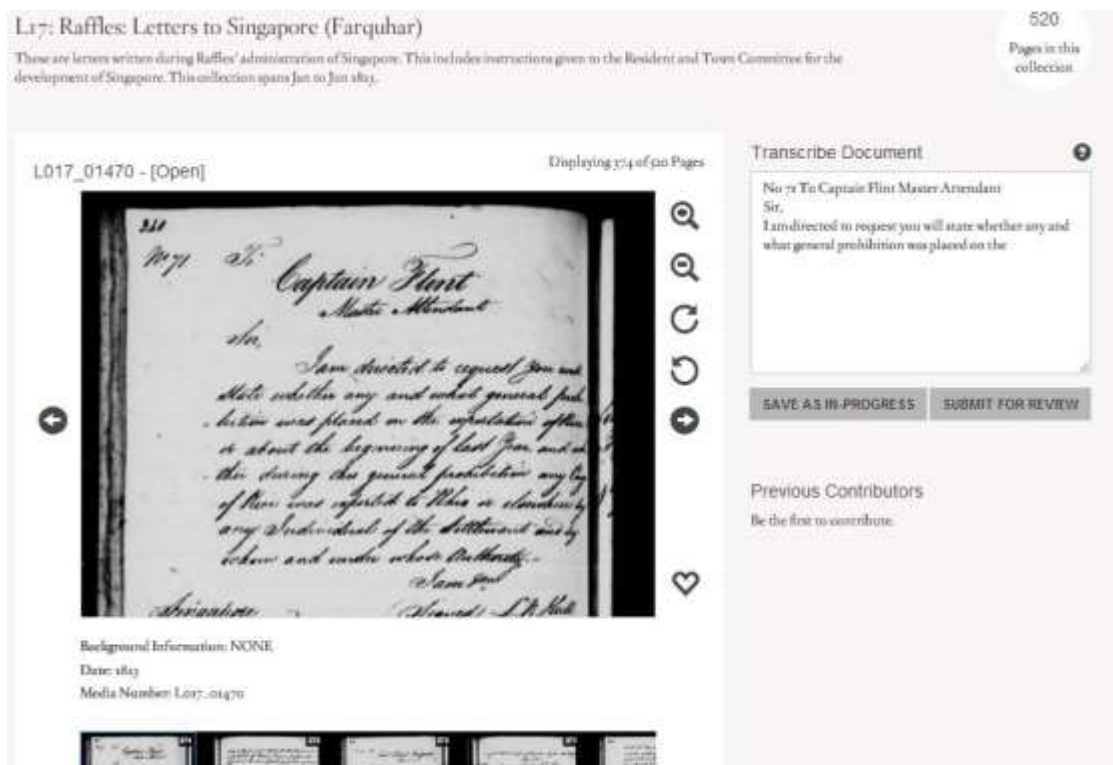 L17: Raffles: Letters to Singapore (Farquhar)
These are letters written during Raffles' administration of Singapore. This includes instructions given to the Resident and Town Committee for the
development of Singapore. This collection spans Jan to Jun 1823.
520
Pages in this
collection
L017_01470 - [Open]
Displaying 374 of 520 Pages
340
No 71 To
Captain Flint
Master Attendant
Sir,
I am directed to request you will
state whether any and what general prohi
-bition was placed on the exportation of Rice
or about the beginning of last Year and
-ther during this general prohibition any
of Rice was exported to Rhio or elsewhere by
any Individual of the Settlement and by
whom and under whose Authority.
I am
Singapore
Signed L N Hull
Background Information: NONE
Date: 1823
Media Number: L017_01470
Transcribe Document
No 71 To Captain Flint Master Attendant
Sir,
I am directed to request you will state whether any and
what general prohibition was placed on the
SAVE AS IN-PROGRESS
SUBMIT FOR REVIEW
Previous Contributors
Be the first to contribute.